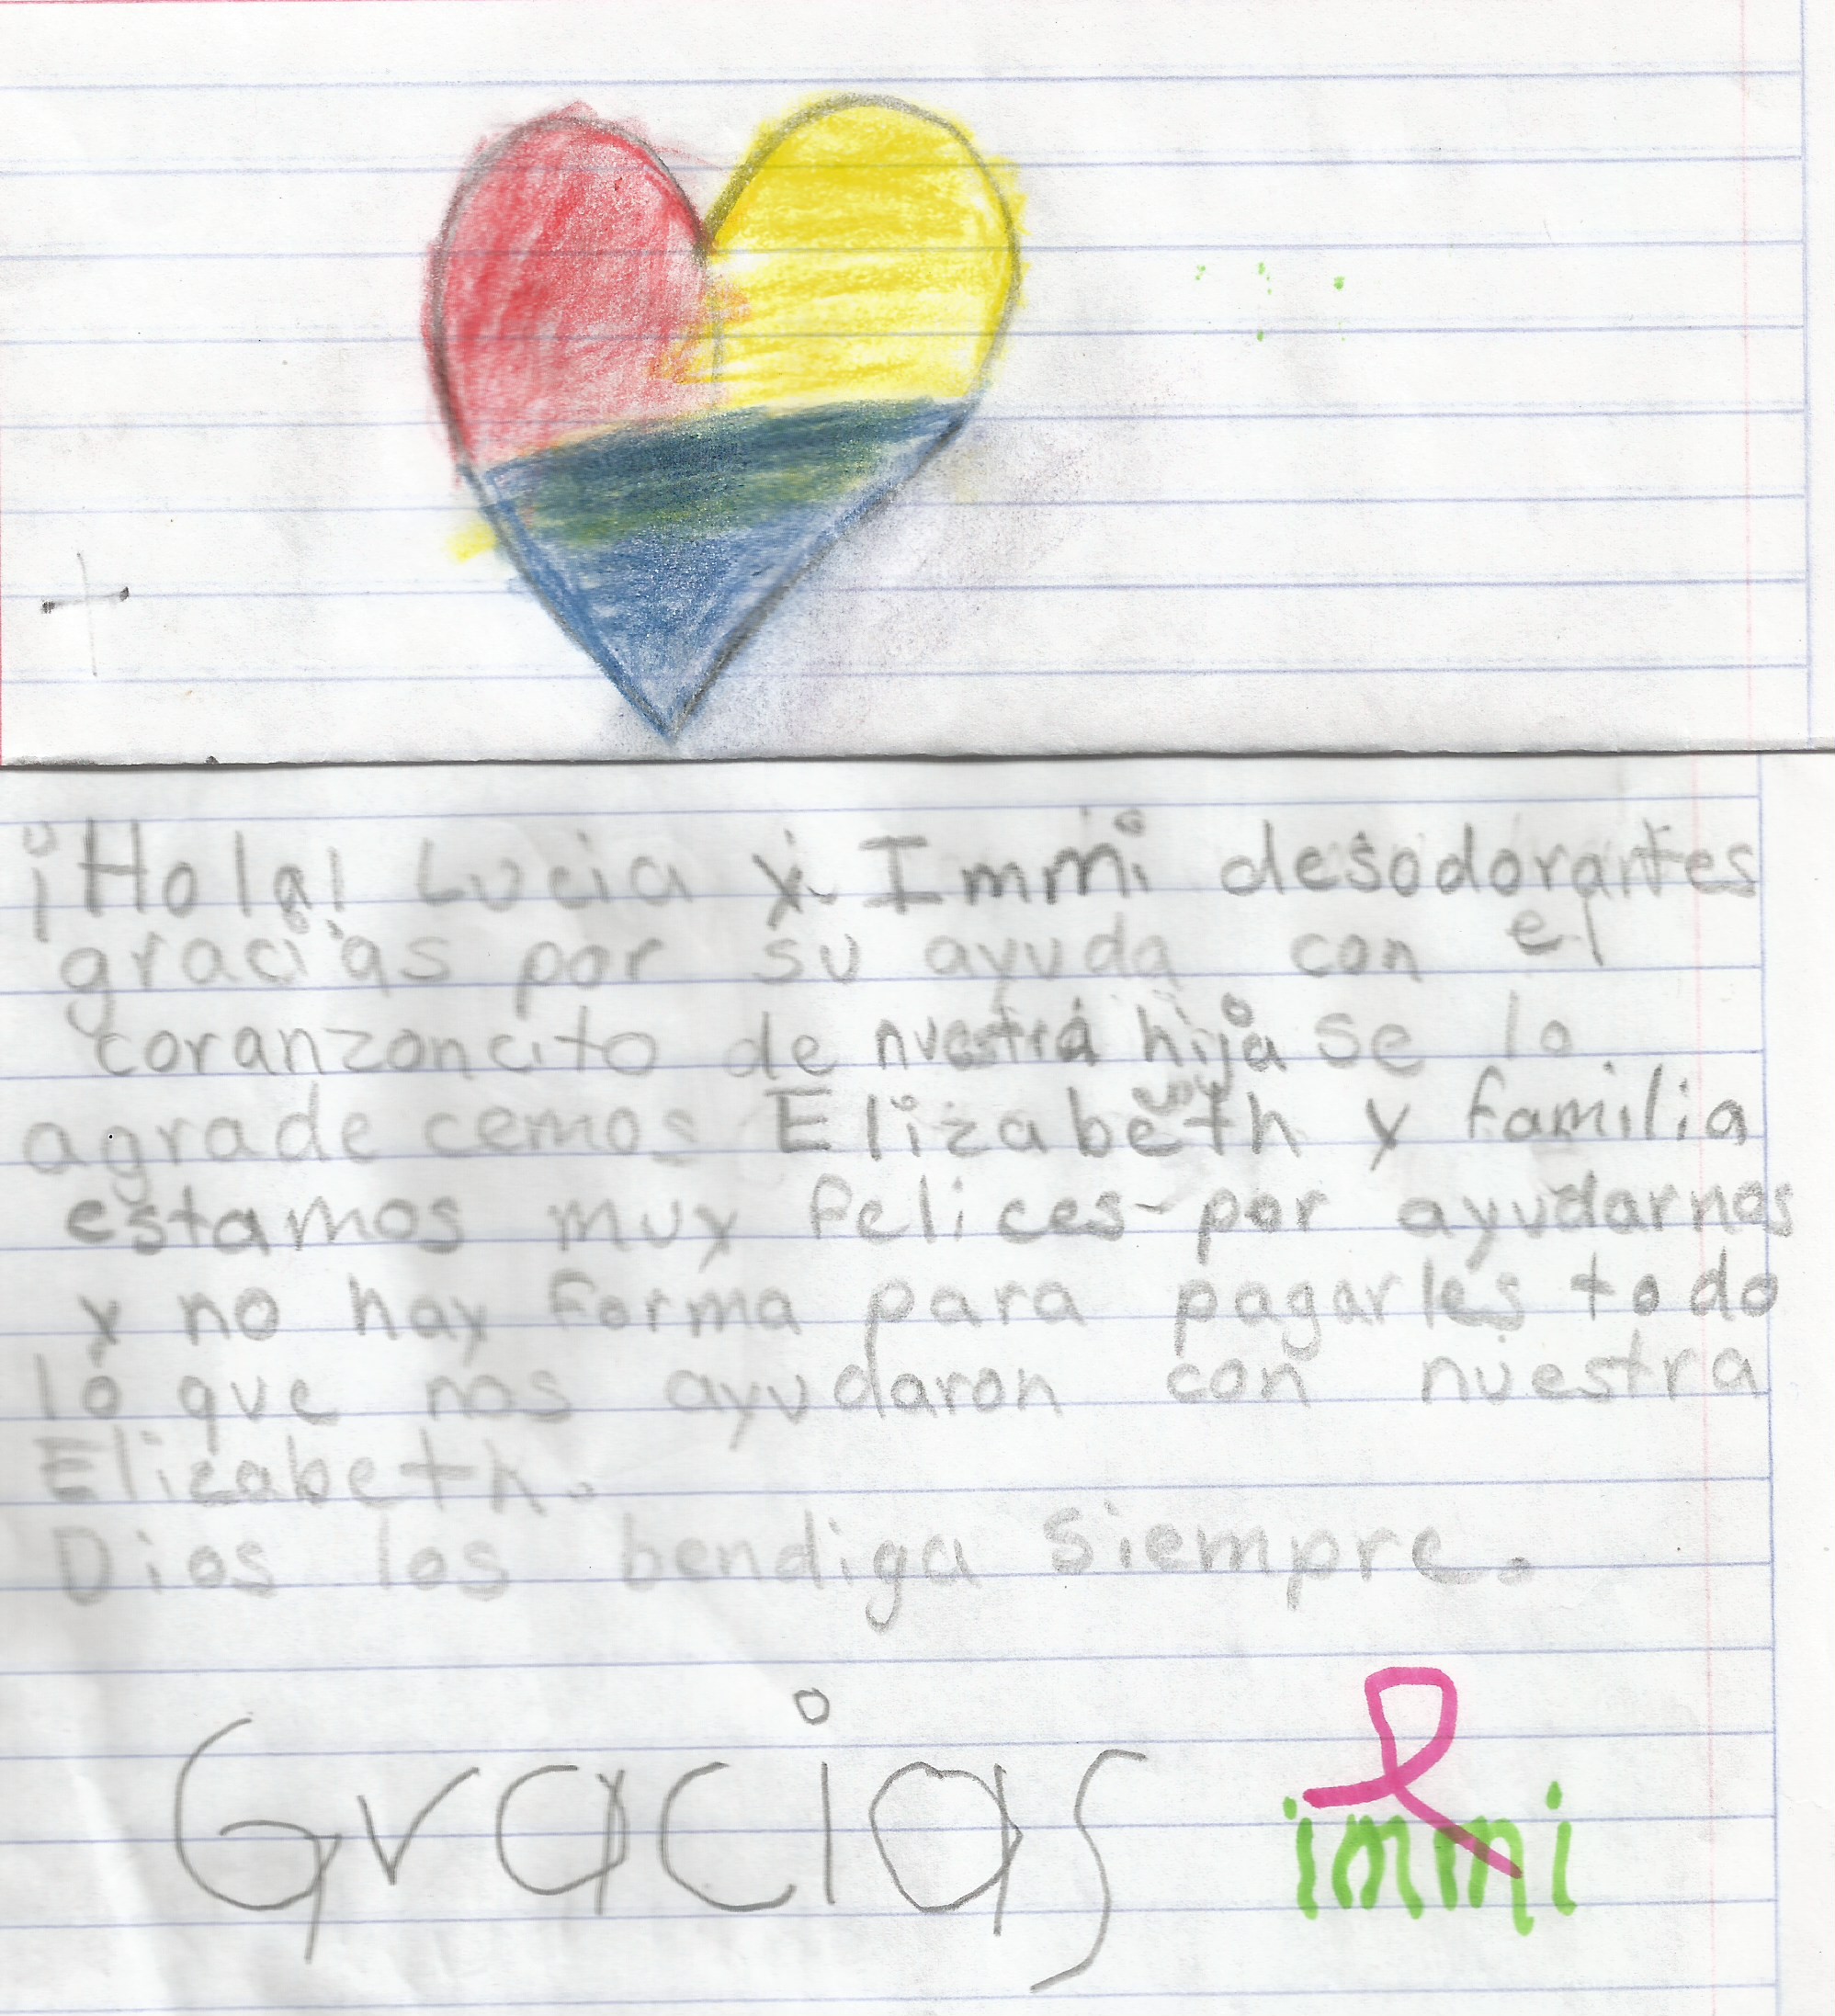 ¡Hola! Lucia y Immi desodorantes
gracias por su ayuda con el
coranzoncito de nuestra hija se lo
agradecemos Elizabeth y familia
estamos muy felices por ayudarnos
y no hay forma para pagarles todo
lo que nos ayudaron con nuestra
Elizabeth.
Dios los bendiga siempre.
Gracias immi